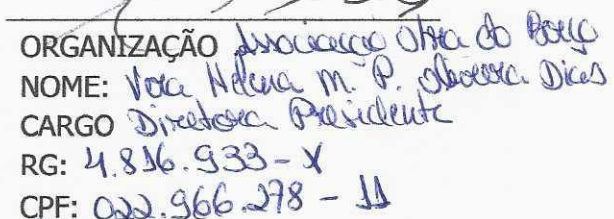 ORGANIZAÇÃO Associação Obra do Berço
NOME: Vera Helena M. P. Oliveira Dias
CARGO Diretora Presidente
RG: 4.816.933-X
CPF: 022.966.278-11